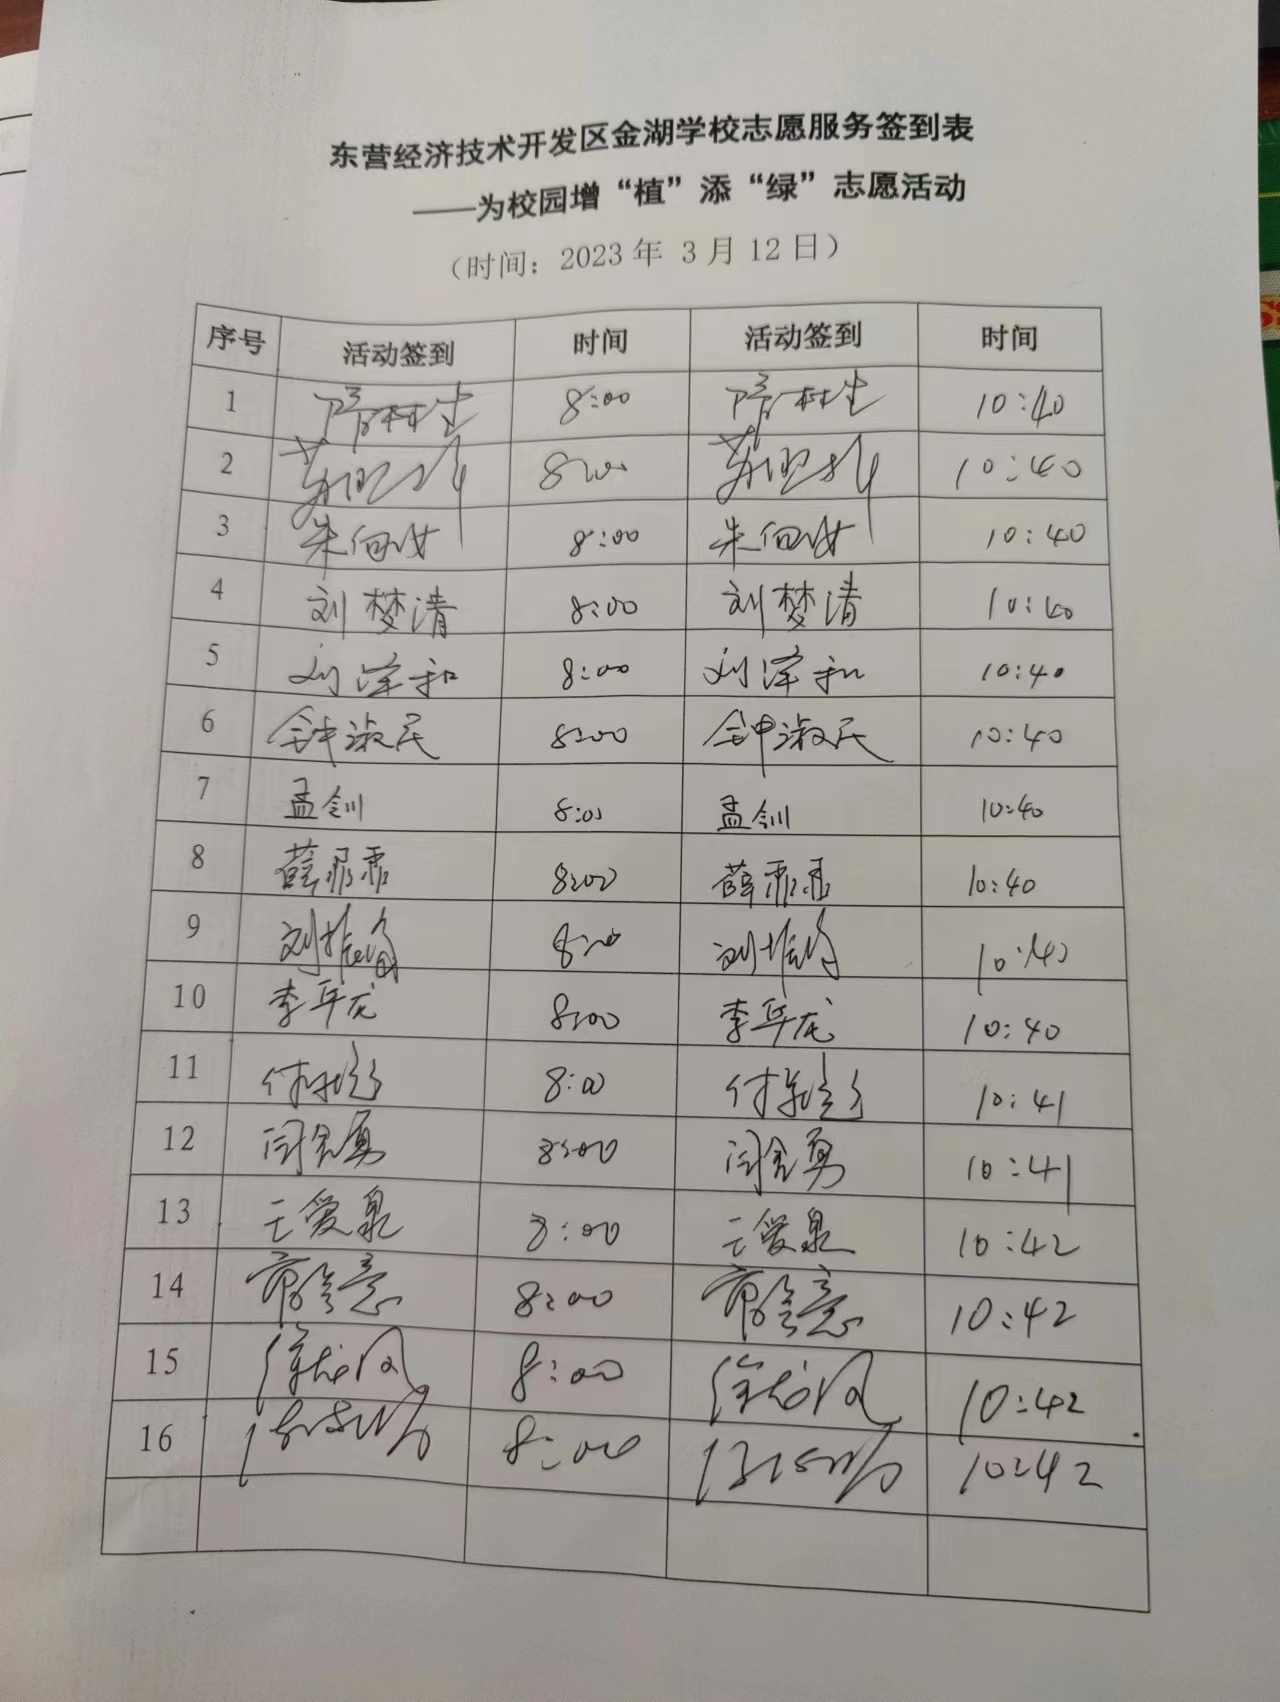 东营经济技术开发区金湖学校志愿服务签到表
——为校园增“植”添“绿”志愿活动
（时间：2023 年 3 月 12 日）
序号 活动签到 时间 活动签到 时间
1 8:00 10:40
2 8:00 10:40
3 8:00 10:40
4 刘梦清 8:00 刘梦清 10:40
5 刘泽和 8:00 刘泽和 10:40
6 钟淑民 8:00 钟淑民 10:40
7 孟钏 8:00 孟钏 10:40
8 薛霏霏 8:00 薛霏霏 10:40
9 8:00 10:40
10 李华龙 8:00 李华龙 10:40
11 8:00 10:41
12 闫金勇 8:00 闫金勇 10:41
13 王爱泉 8:00 王爱泉 10:42
14 8:00 10:42
15 8:00 10:42
16 8:00 10:42